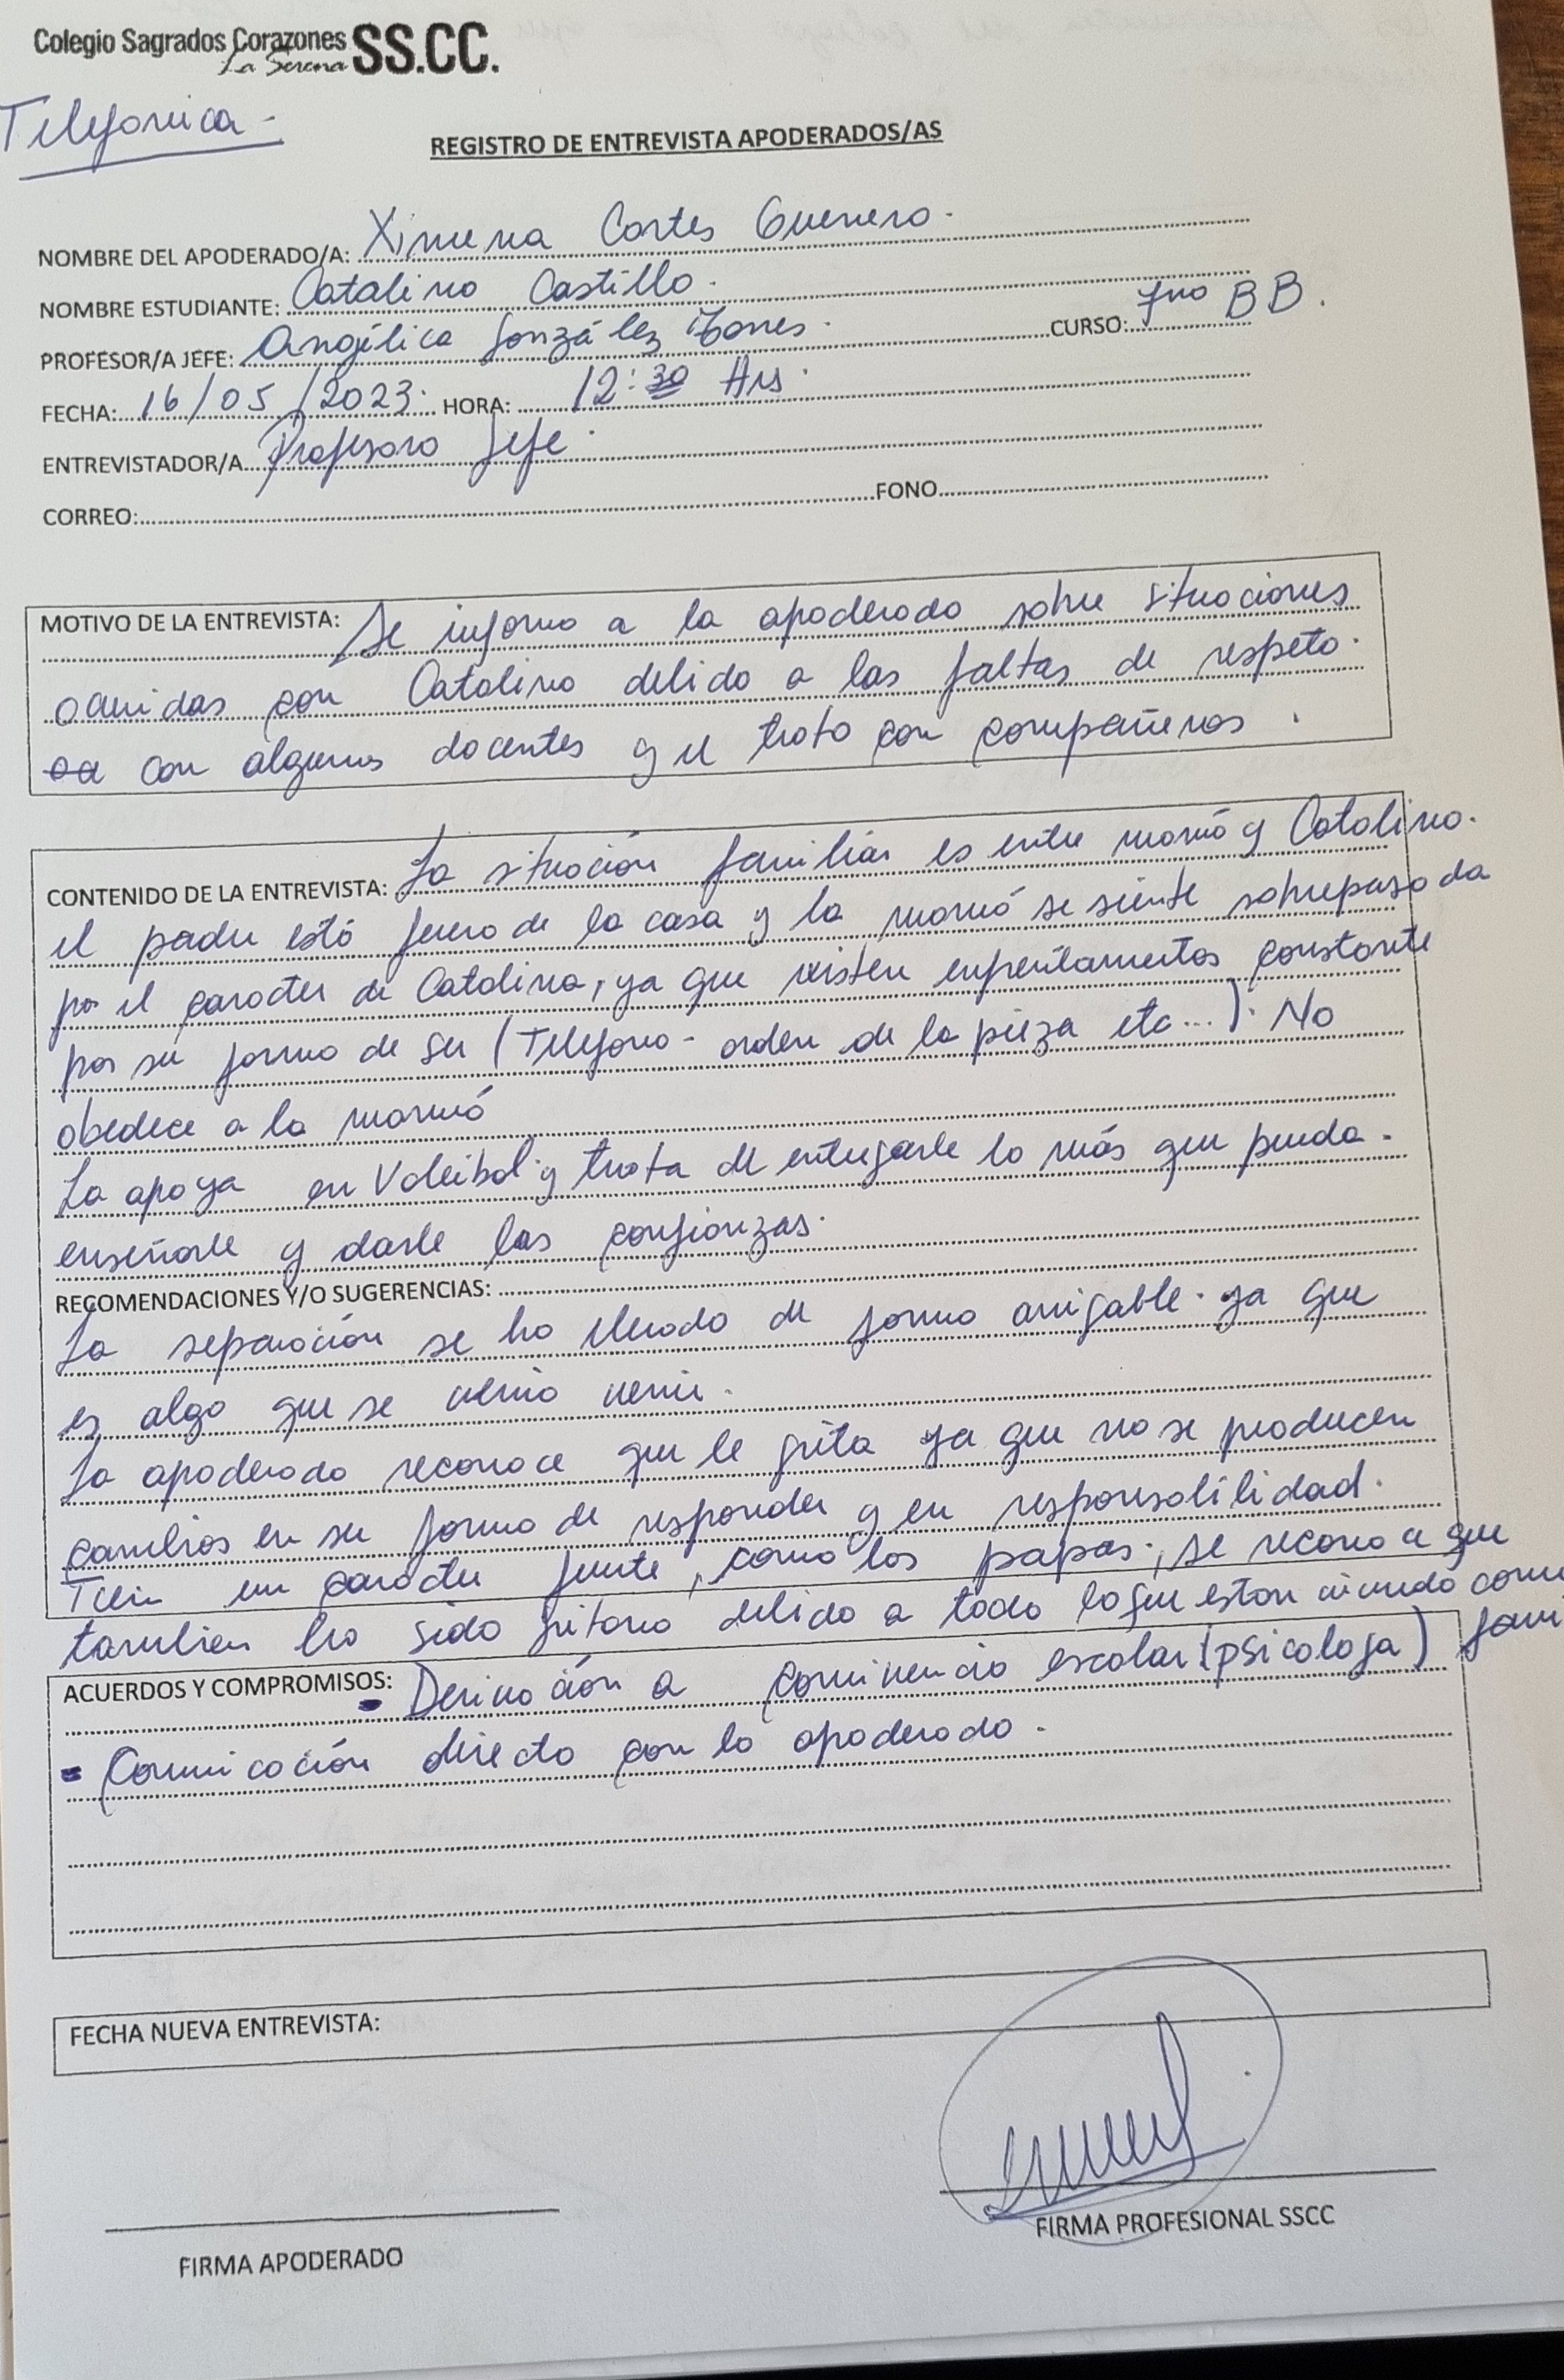 Colegio Sagrados Corazones SS.CC.
La Serena
Telefonica -
REGISTRO DE ENTREVISTA APODERADOS/AS
NOMBRE DEL APODERADO/A: Ximena Cortes Guerrero.
NOMBRE ESTUDIANTE: Catalina Castillo.
PROFESOR/A JEFE: Angélica González Torres. CURSO: 7mo BB.
FECHA: 16/05/2023. HORA: 12:30 Hrs.
ENTREVISTADOR/A Profesora Jefe.
CORREO: FONO
MOTIVO DE LA ENTREVISTA: Se informa a la apoderada sobre situaciones
ocurridas con Catalina debido a las faltas de respeto.
con algunos docentes y el trato con compañeros.
CONTENIDO DE LA ENTREVISTA: La situación familiar es entre mamá y Catalina.
el padre está fuera de la casa y la mamá se siente sobrepasada
por el caracter de Catalina, ya que existen enfrentamientos constante
por su forma de ser (Telefono - orden de la pieza etc...). No
obedece a la mamá
La apoya en Voleibol y trata de entregarle lo más que pueda.
enseñarle y darle las confianzas.
RECOMENDACIONES Y/O SUGERENCIAS:
La separación se ha llevado de forma amigable. ya que
es algo que se venir.
La apoderada reconoce que le grita ya que no se producen
cambios en su forma de responder y en responsabilidad.
un caracter fuerte, como los papas., se reconoce que
tambien ha sido debido a todo lo que estan viviendo como
fami
ACUERDOS Y COMPROMISOS: - Derivación a convivencia escolar (psicologa)
- Comunicación directa con la apoderada.
FECHA NUEVA ENTREVISTA:
FIRMA APODERADO
FIRMA PROFESIONAL SSCC